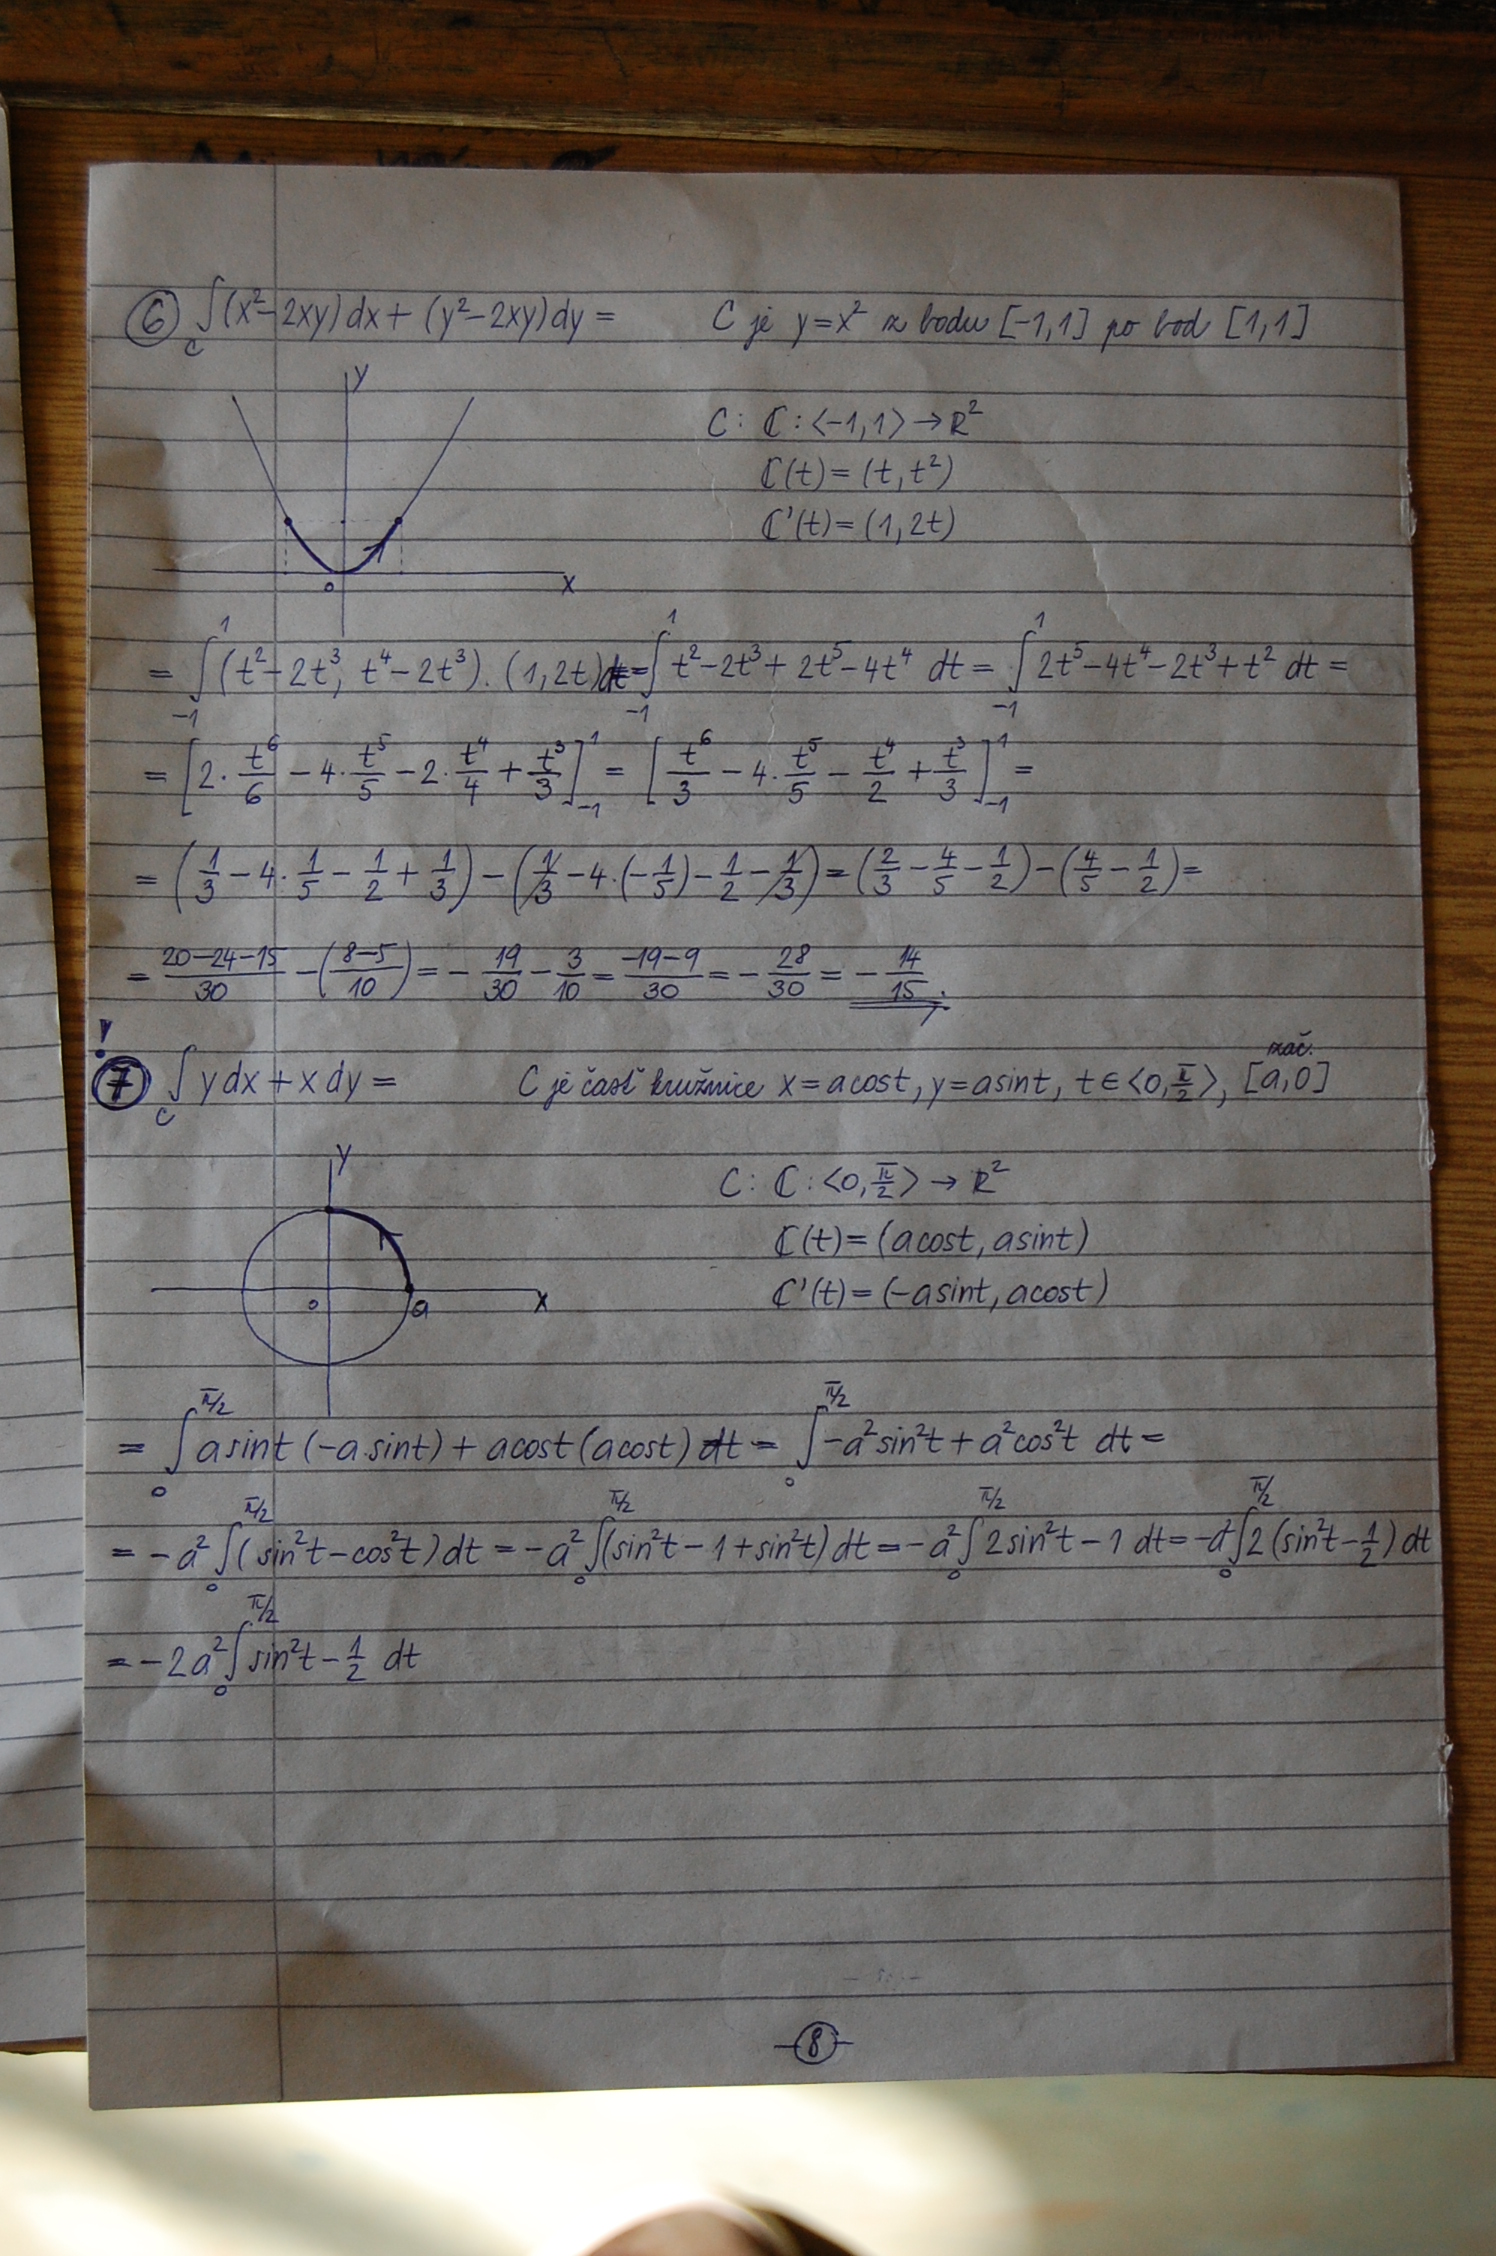 ⑥ ∫_C (x² - 2xy) dx + (y² - 2xy) dy = C je y = x² z bodu [-1,1] po bod [1,1]
y
C: ℂ: ⟨-1,1⟩ → R²
ℂ(t) = (t, t²)
ℂ'(t) = (1, 2t)
0 x
= ∫_{-1}^{1} (t² - 2t³, t⁴ - 2t³) . (1, 2t) dt = ∫_{-1}^{1} t² - 2t³ + 2t⁵ - 4t⁴ dt = ∫_{-1}^{1} 2t⁵ - 4t⁴ - 2t³ + t² dt =
= [2 · t⁶/6 - 4 · t⁵/5 - 2 · t⁴/4 + t³/3]_{-1}^{1} = [t⁶/3 - 4 · t⁵/5 - t⁴/2 + t³/3]_{-1}^{1} =
= (1/3 - 4 · 1/5 - 1/2 + 1/3) - (1/3 - 4 · (-1/5) - 1/2 - 1/3) = (2/3 - 4/5 - 1/2) - (4/5 - 1/2) =
= (20-24-15)/30 - ((8-5)/10) = - 19/30 - 3/10 = (-19-9)/30 = - 28/30 = - 14/15
!
⑦ ∫_C y dx + x dy = C je časť kružnice x = a cost, y = a sint, t ∈ ⟨0, π/2⟩, zač. [a,0]
y
C: ℂ: ⟨0, π/2⟩ → R²
ℂ(t) = (a cost, a sint)
ℂ'(t) = (-a sint, a cost)
0 a x
= ∫_0^{π/2} a sint (-a sint) + a cost (a cost) dt = ∫_0^{π/2} -a² sin²t + a² cos²t dt =
= -a² ∫_0^{π/2} (sin²t - cos²t) dt = -a² ∫_0^{π/2} (sin²t - 1 + sin²t) dt = -a² ∫_0^{π/2} 2 sin²t - 1 dt = -a² ∫_0^{π/2} 2 (sin²t - 1/2) dt
= -2a² ∫_0^{π/2} sin²t - 1/2 dt
-8-